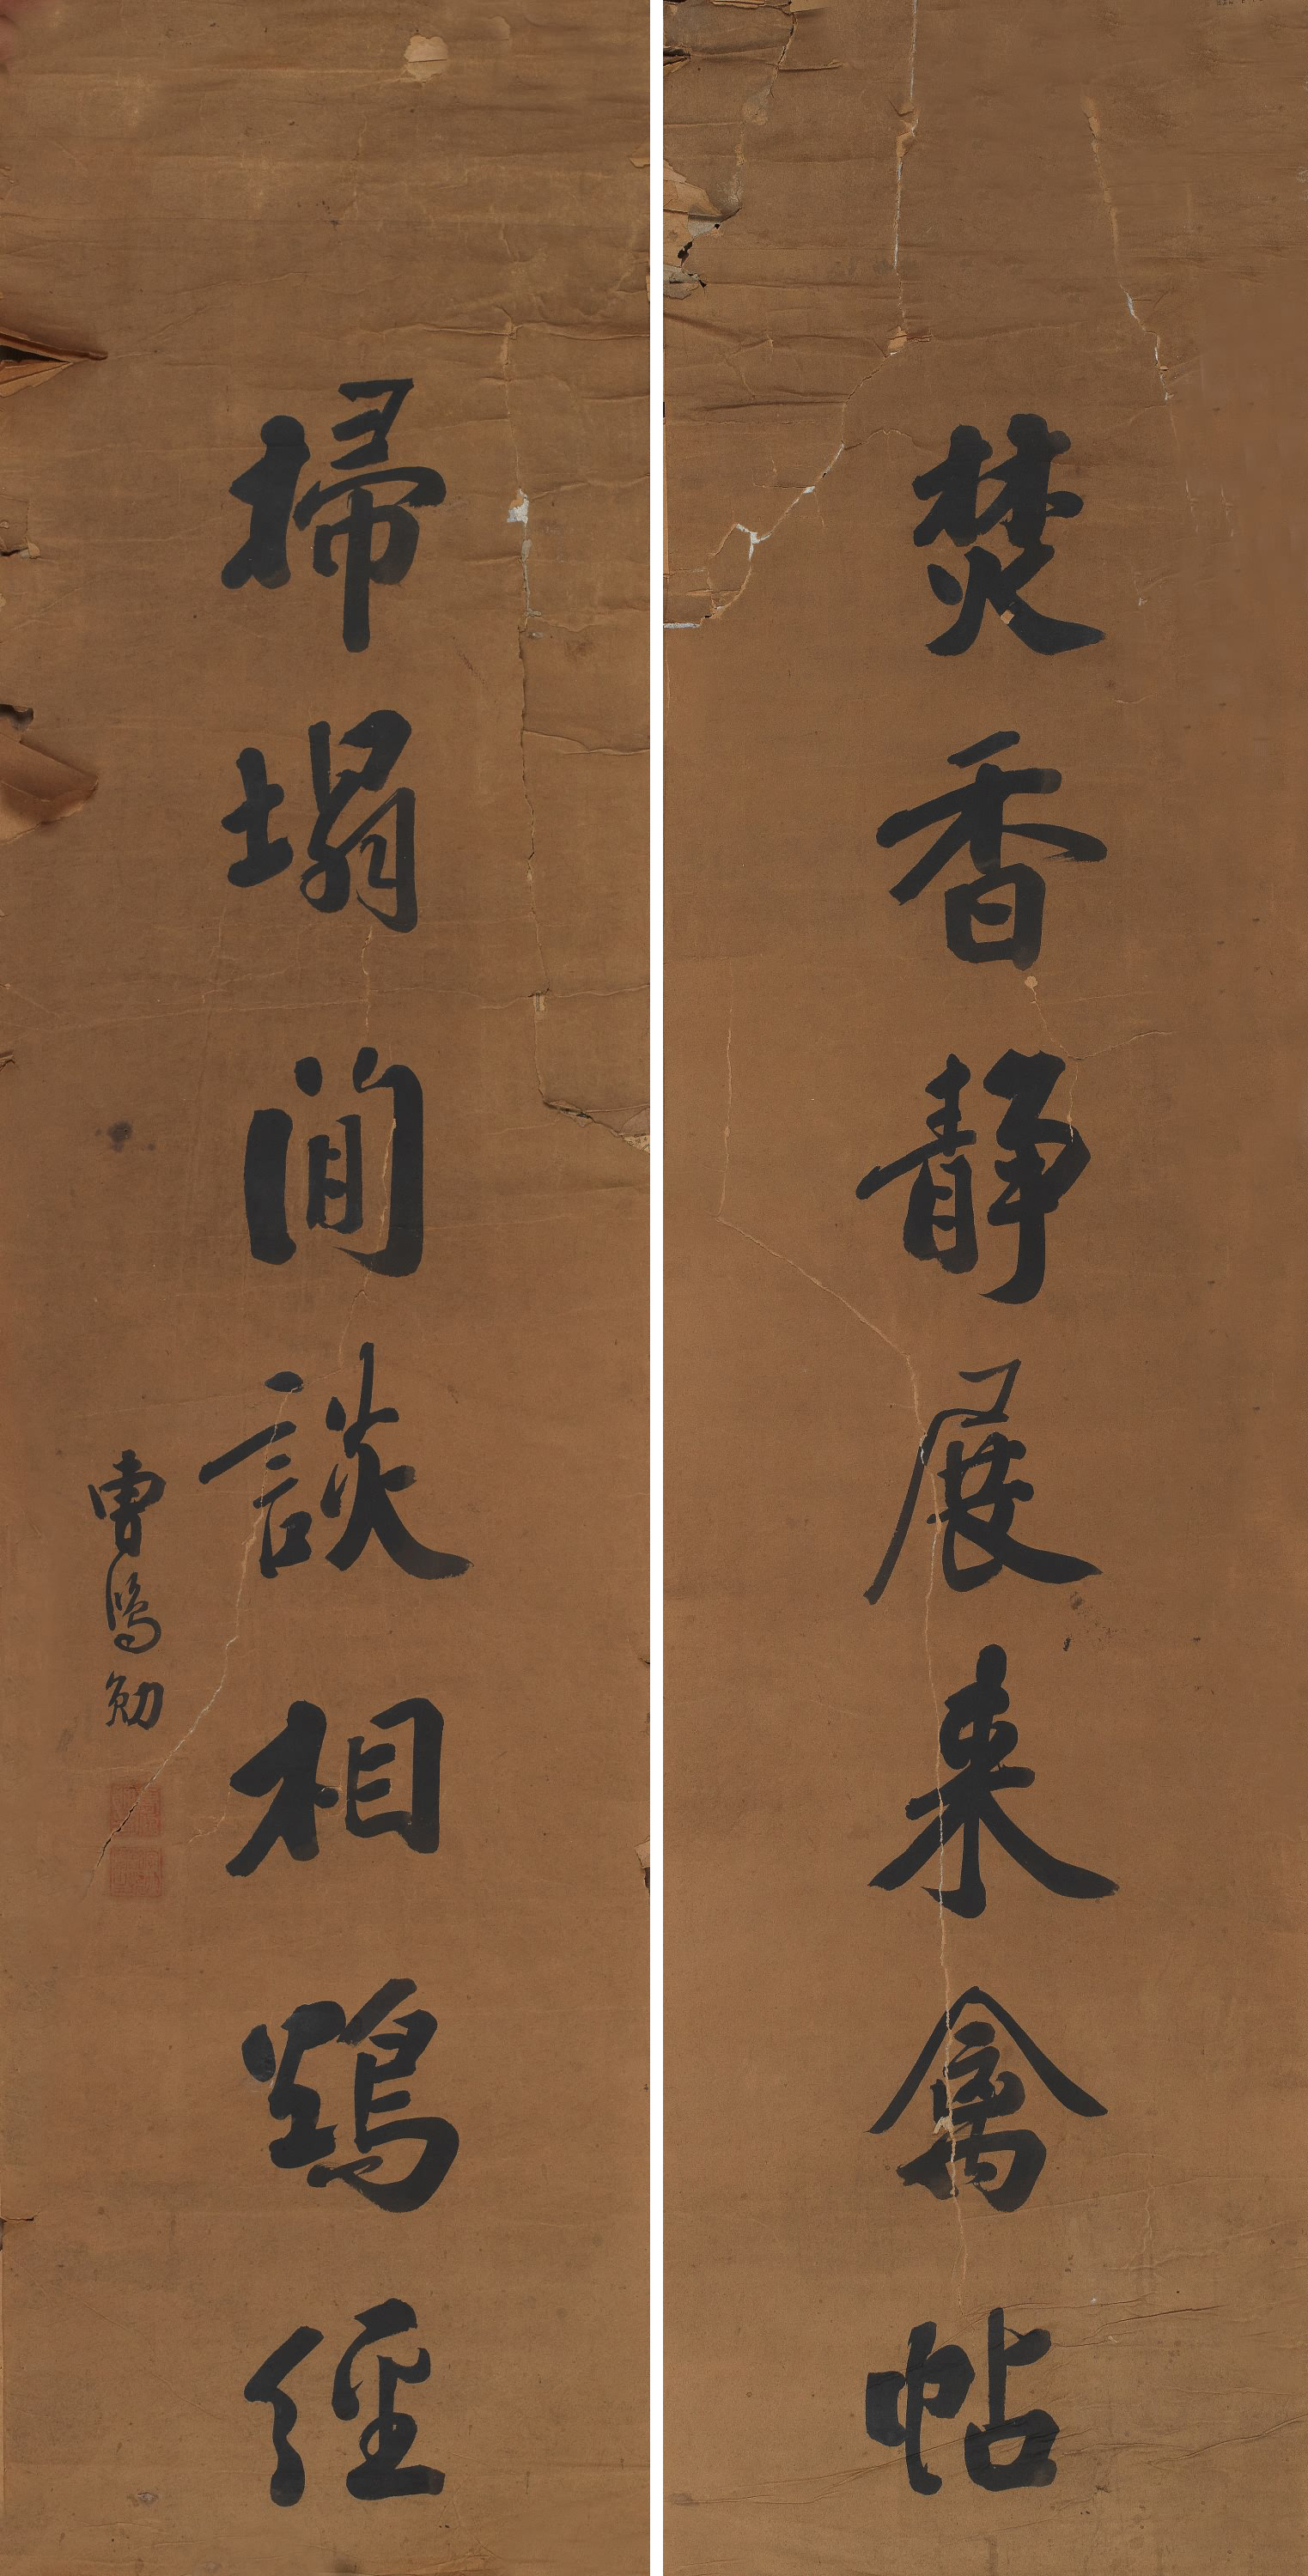 焚香静展来禽帖
掃塌閒談相鶴經
曹鴻勛